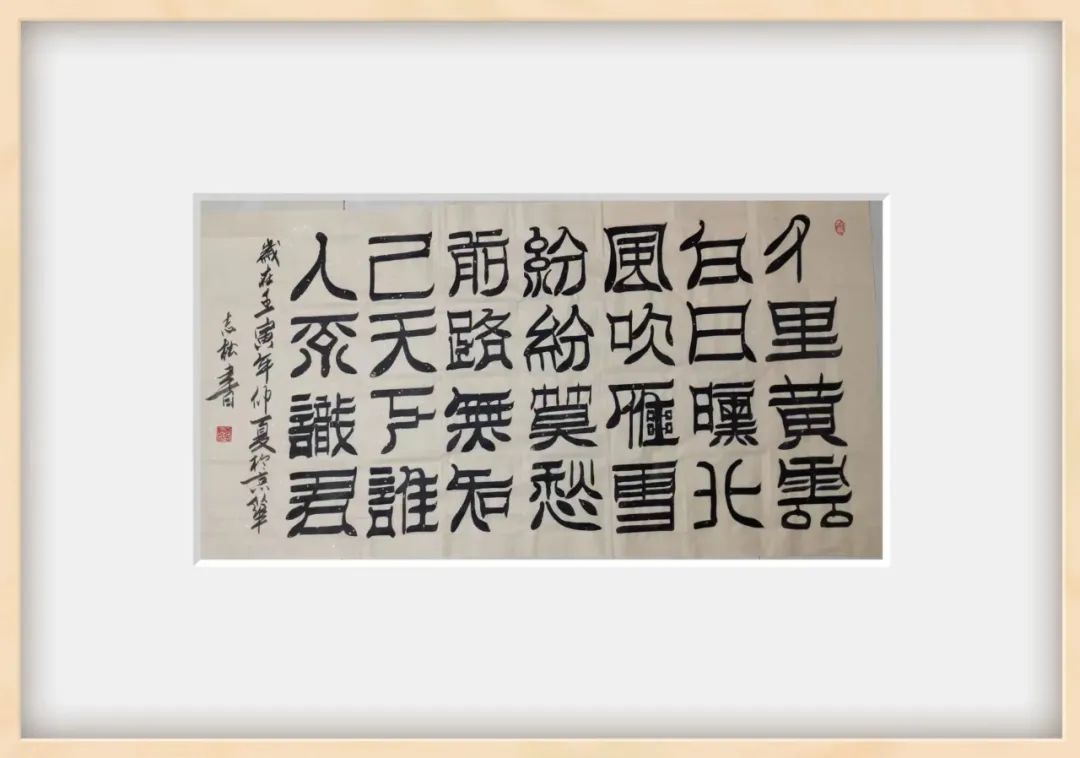 千里黃雲
白日曛北
風吹雁雪
紛紛莫愁
前路無知
己天下誰
人不識君
歲在壬寅年仲夏於京華
志松書